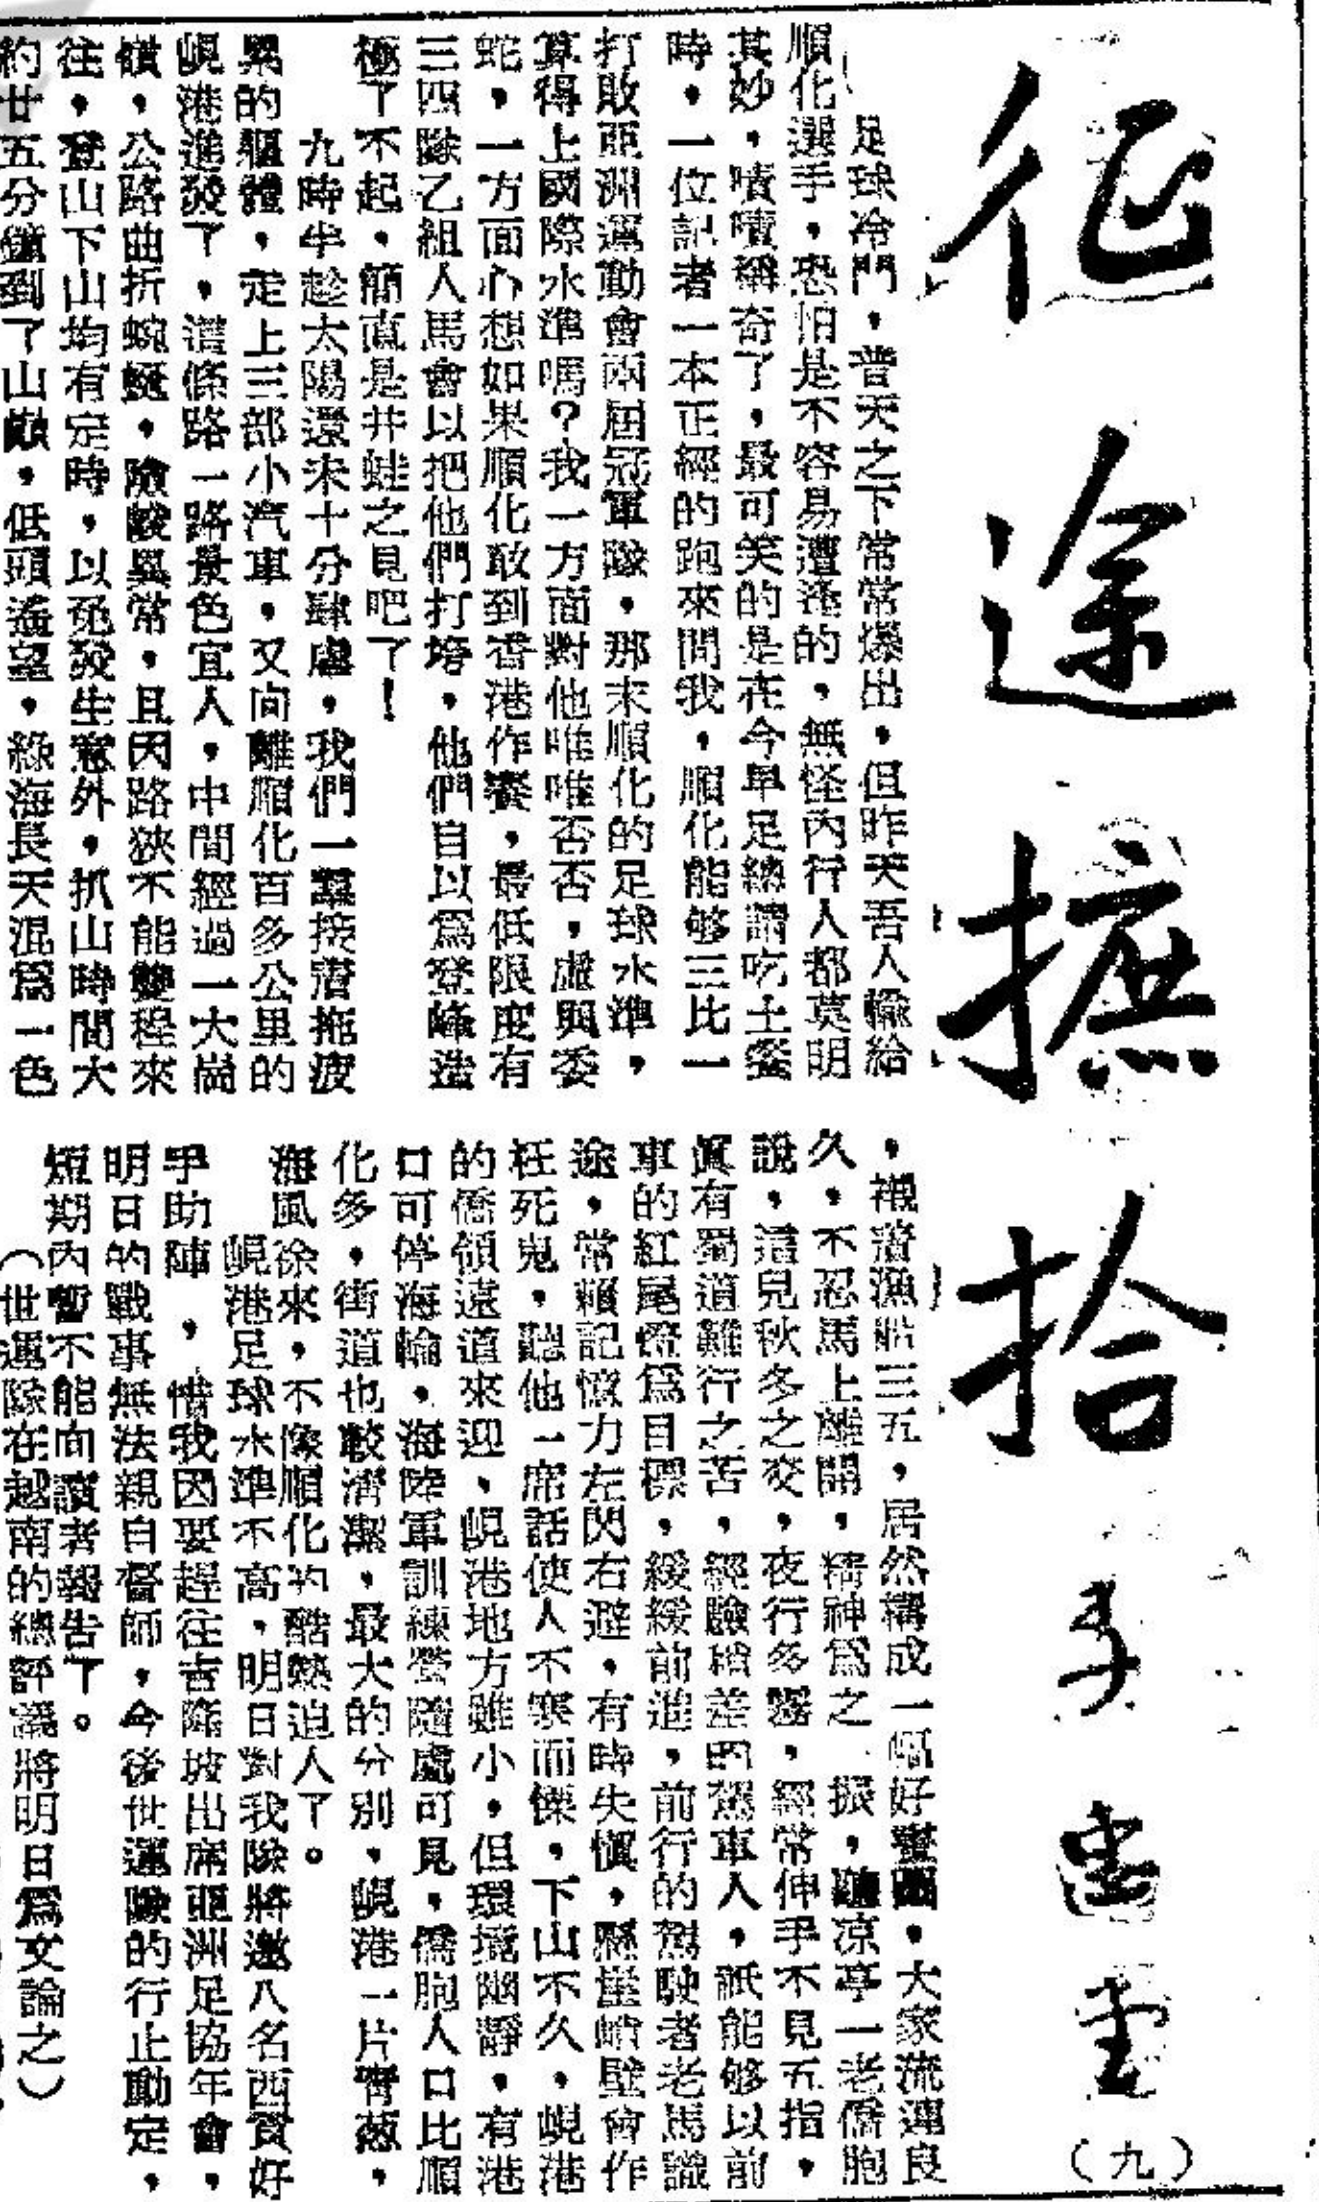 征途摭拾
（九）
足球冷門，普天之下常常爆出，但昨天吾人輸給
順化選手，恐怕是不容易遭逢的，無怪內行人都莫明
其妙，嘖嘖稱奇了，最可笑的是在今早足總請吃土餐
時，一位記者一本正經的跑來問我，順化能够三比一
打敗亞洲運動會兩屆冠軍隊，那末順化的足球水準，
算得上國際水準嗎？我一方面對他唯唯否否，虛與委
蛇，一方面心想如果順化敢到香港作賽，最低限度有
三四隊乙組人馬會以把他們打垮，他們自以為登峰造
極了不起，簡直是井蛙之見吧了！
九時半趁太陽還未十分肆虐，我們一羣挨着拖疲
累的軀體，走上三部小汽車，又向離順化百多公里的
峴港進發了，這條路一路景色宜人，中間經過一大崗
嶺，公路曲折蜿蜒，險峻異常，且因路狹不能雙程來
往，登山下山均有定時，以免發生意外，抓山時間大
約廿五分鐘到了山巔，低頭遙望，綠海長天混為一色
，襯着漁船三五，居然構成一幅好畫圖，大家流連良
久，不忍馬上離開，精神為之一振，聽凉亭一老僑胞
說，這兒秋冬之交，夜行多霧，經常伸手不見五指，
眞有蜀道難行之苦，經驗稍差的駕車人，祇能够以前
車的紅尾燈為目標，緩緩前進，前行的駕駛者老馬識
途，常賴記憶力左閃右避，有時失愼，懸崖峭壁會作
枉死鬼，聽他一席話使人不寒而慄，下山不久，峴港
的僑領遠道來迎，峴港地方雖小，但環境幽靜，有港
口可停海輪，海陸軍訓練營隨處可見，僑胞人口比順
化多，街道也較清潔，最大的分別，峴港一片青葱，
海風徐來，不像順化的酷熱迫人了。
峴港足球水準不高，明日對我隊將邀八名西貢好
手助陣，惜我因要趕往吉隆坡出席亞洲足協年會，
明日的戰事無法親自督師，今後世運隊的行止動定，
短期內暫不能向讀者報告了。
（世運隊在越南的總評議將明日為文論之）